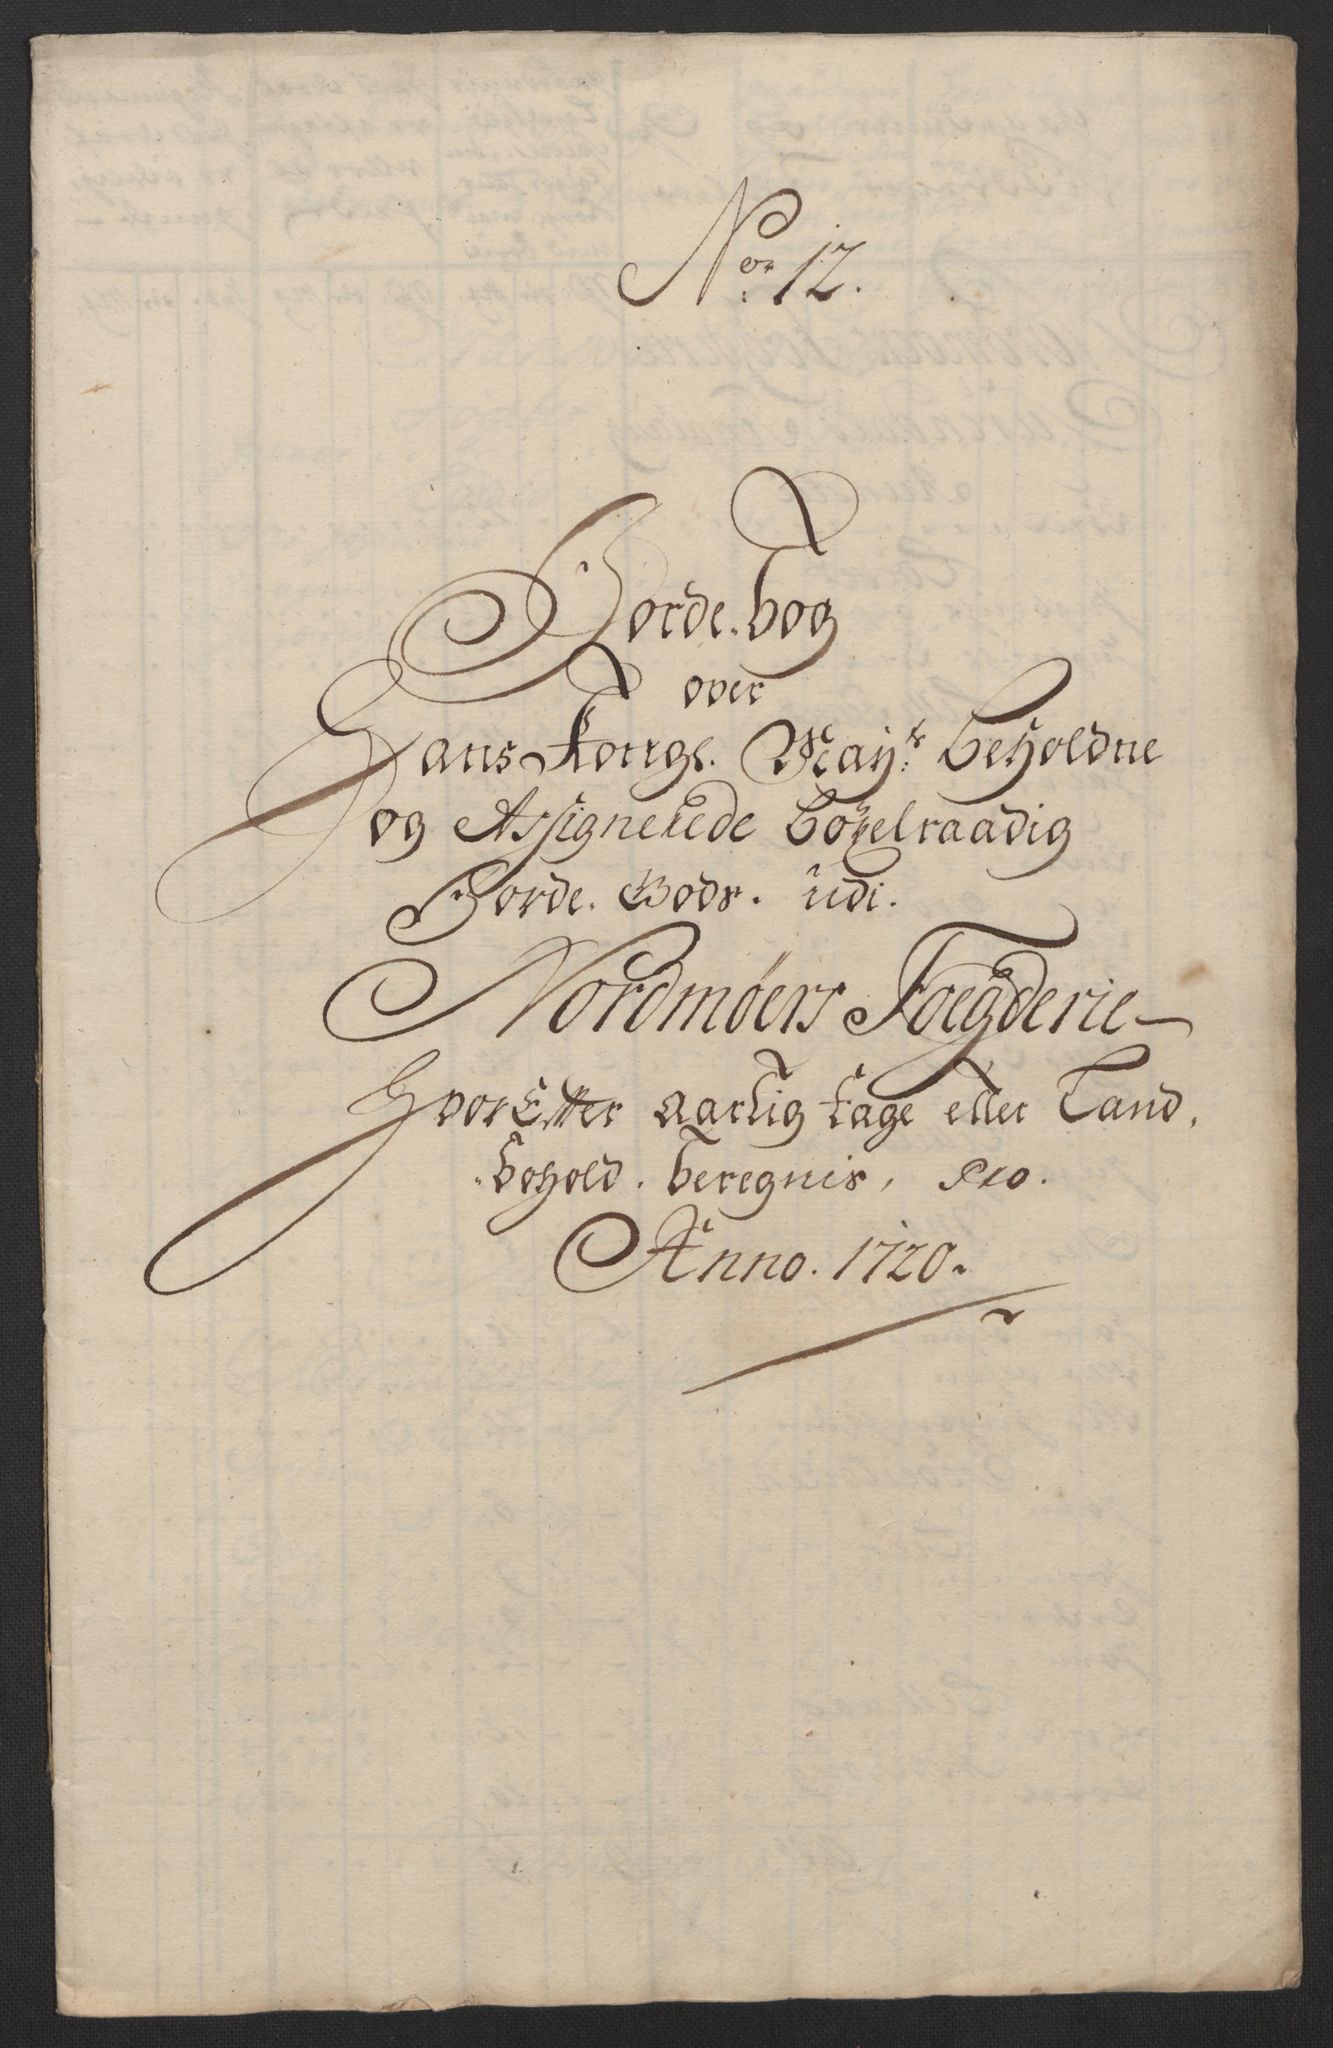 No: 12.
Jorde. bog
over
Hans Kongl. Mayts: beholdne
og Assignerede böxelraadig
Jorde. Gods. udi.
Nordmøers Foegderie
Hvor Efter aarlig tage eller Land,
bohold. beregnis, Pro.
Anno. 1720.